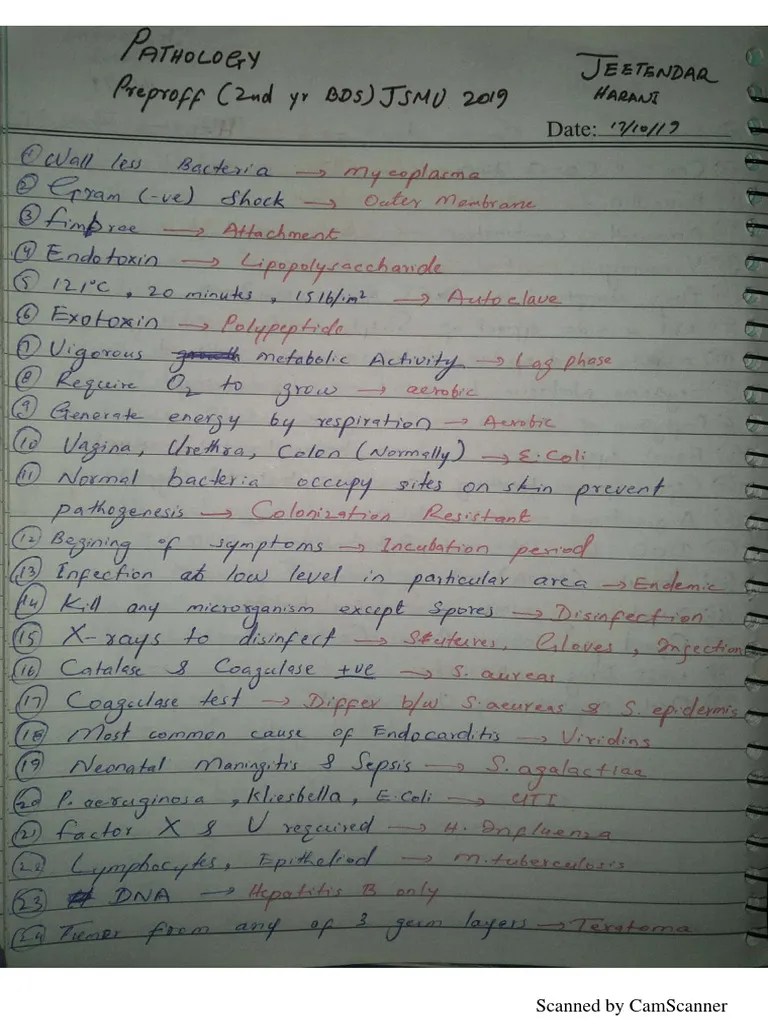 PATHOLOGY
Preproff (2nd yr BDS) JSMU 2019
JEETENDAR
HARANI
Date: 17/10/19
① Wall less Bacteria → Mycoplasma
② Gram (-ve) Shock → Outer Membrane
③ Fimbrae → Attachment
④ Endotoxin → Lipopolysaccharide
⑤ 121°C, 20 minutes, 15 lb/in² → Autoclave
⑥ Exotoxin → Polypeptide
⑦ Vigorous growth metabolic Activity → Lag phase
⑧ Require O₂ to grow → aerobic
⑨ Generate energy by respiration → Aerobic
⑩ Vagina, Urethra, Colon (Normally) → E. Coli
⑪ Normal bacteria occupy sites on skin prevent
pathogenesis → Colonization Resistant
⑫ Begining of symptoms → Incubation period
⑬ Infection at low level in particular area → Endemic
⑭ Kill any microorganism except Spores → Disinfection
⑮ X-rays to disinfect → Sutures, Gloves, Injection
⑯ Catalase & Coagulase +ve → S. aureas
⑰ Coagulase test → Differ b/w S. aeureas & S. epidermis
⑱ Most common cause of Endocarditis → Viridins
⑲ Neonatal Maningitis & Sepsis → S. agalactiae
⑳ P. aeruginosa, Kliesbella, E. Coli → UTI
㉑ Factor X & V required → H. Influenza
㉒ Lymphocytes, Epitheliod → M. tuberculosis
㉓ DNA → Hepatitis B only
㉔ Tumor from any of 3 germ layers → Teratoma
Scanned by CamScanner